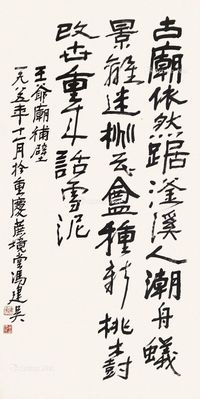 古廟依然踞滏溪人潮舟蟻
景離迷盦種新桃樹
改世重來話雪泥
王爺廟補壁
一九八五年十一月於重慶蔗境堂馮建吳